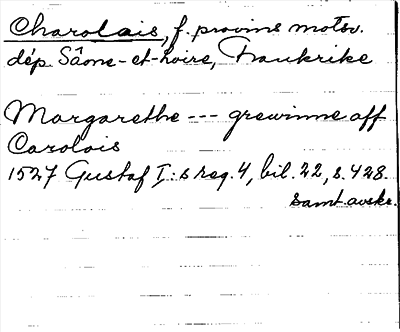 Charolais, f. provins motsv.
dép. Sâone-et-Loire, Frankrike
Margarethe --- grewinne aff
Carolois
1527 Gustaf I:s reg. 4, bil. 22, s. 428.
samt. avskr.